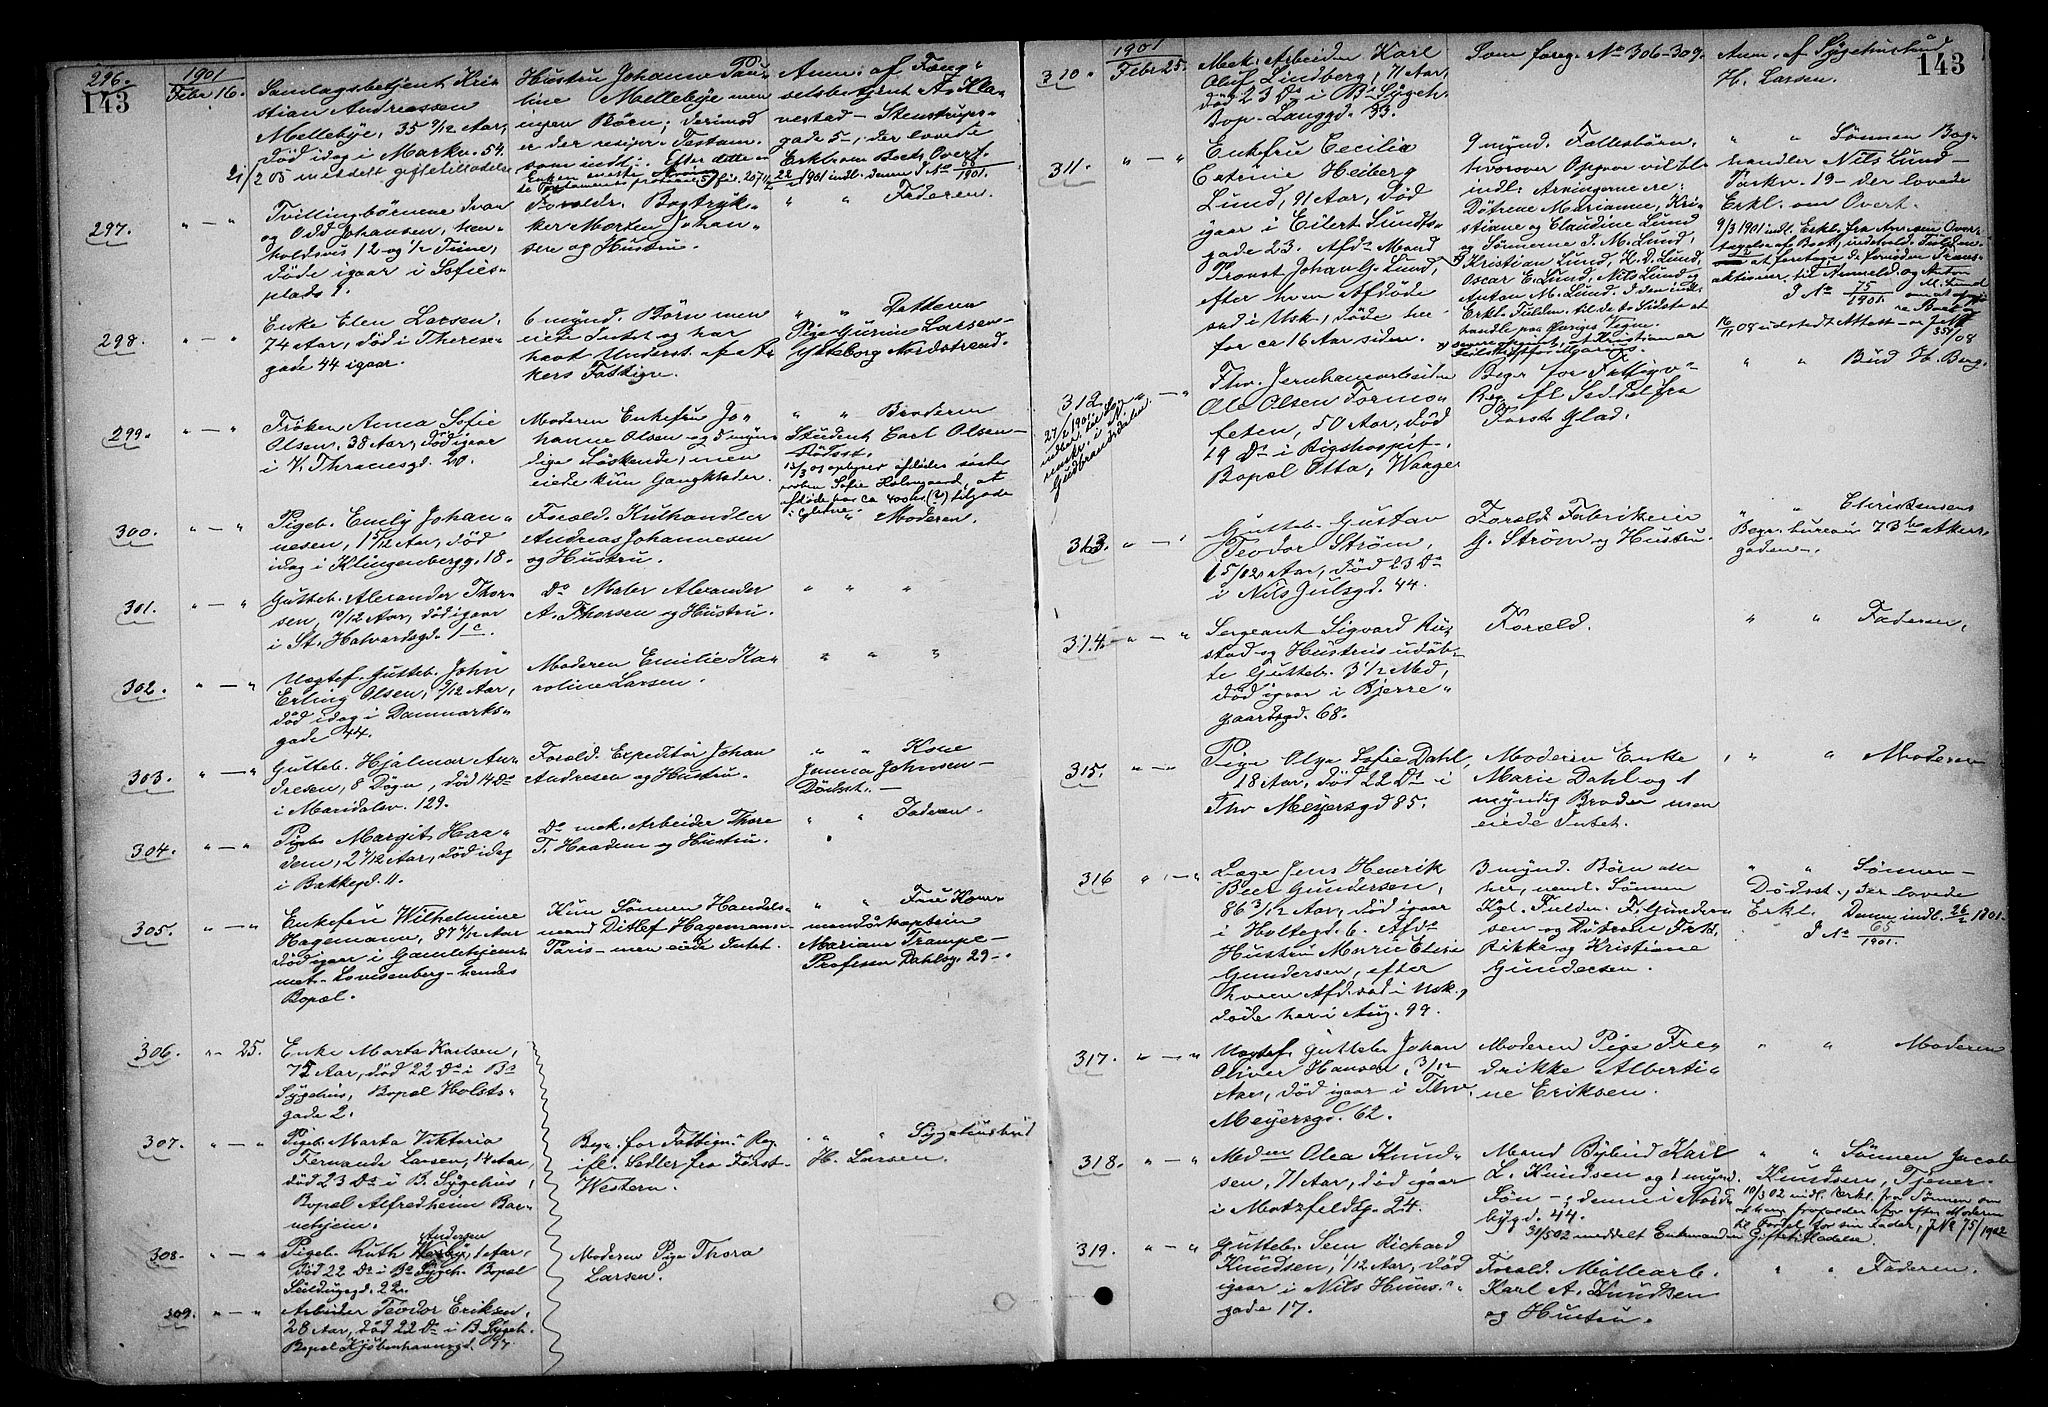 143
296.
1901
Febr 16.
Samlagsbetjent Kri-
stian Andreassen
Mellebye, 35 9/12 Aar,
død idag i Markv. 54.
21/2 05 meddelt giftetilladelse
Hustru Johanne Pau-
line Mellebye men
ingen Børn; derimod
er der recipr. Testam.
som indl.. Efter dette er
Enken eneste
Anm. af Fæng-
selsbetjent A. Kla-
vestad - Stenstrups-
gade 5 -, der lovede
Erkl. om Boets Overt.
22/2 1901 indl. denne J No 1901.
297.
" - "
Tvillingbørnene Ivar
og Odd Johansen, hen-
holdsvis 12 og 1/2 Time,
døde igaar i Sofies-
plads 1.
Foreldr. Bogtryk-
ker Morten Johan-
sen og Hustru.
" " Faderen.
298.
" - "
Enke Elen Larsen,
74 Aar, død i Therese-
gade 44 igaar.
6 mynd. Børn men
eiede Intet og har
havt Underst. af A-
kers Fattigv.
" " Datteren
Pige Gurine Larsen -
Ljabeborg Nordstrand.
299.
" - "
Frøken Anna Sofie
Olsen, 38 Aar, død igaar
i V. Thranesgd. 20.
Moderen Enkefru Jo-
hanne Olsen og 3 myn-
dige Søskende, men
eiede kun Gangklæder.
" " Broderen
Student Carl Olsen -
Dødsst.
300.
" - "
Pigeb. Emily Johan-
nesen, 1 5/12 Aar, død
idag i Klingenbergg. 18.
Foræld. Kulhandler
Andreas Johannesen
og Hustru.
" Moderen.
301.
" - "
Gutteb. Alexander Thor-
sen, 10/12 Aar, død igaar
i St. Halvardsgd. 1c.
Do Maler Alexander
A. Thorsen og Hustru.
" " "
302.
" - "
Uægtef. Gutteb. John
Erling Olsen, 9/12 Aar,
død idag i Danmarks-
gade 44.
Moderen Emilie Ka-
roline Larsen.
" " "
303.
" - "
Gutteb. Hjalmar An-
dresen, 8 Døgn, død 14 Ds
i Maridalsv. 129.
Foræld. Expeditør Johan
Andresen og Hustru.
" " Kone
Jonna Johnsen -
Dødsst. -
304.
" - "
Pigeb. Margit Haa-
dem, 2 7/12 Aar, død idag
i Bakkegd. 11.
Do mek. Arbeider Thore
T. Haadem og Hustru.
" " Faderen.
305.
" - "
Enkefru Wilhelmine
Hagemann, 87 4/12 Aar
død igaar i Gamlehjem-
met - Lovisenberg - hendes
Bopæl.
Kun Sønnen Handels-
mand Ditlef Hagemann -
Paris - men eiede Intet.
" " Fru Kom-
mandørkaptein
Mariane Trampe -
Professor Dahlsg. 29 -.
306.
" - 25.
Enke Marta Karlsen,
72 Aar, død 22 Ds i Bs
Sygehus, Bopæl Holsts-
gade 2.
307.
" - "
Pigeb. Marta Viktoria
Fernande Larsen, 14 Aar,
død 23 Ds i B. Sygehus,
Bopæl Alfredheim Bar-
nehjem.
Begr. for Fattigv. Reg.
ifl. Sedler fra Forst.
Western.
" " Sygehusbud
H. Larsen.
308.
" - "
Andersen
Pigeb. Ruth 1 Aar,
død 22 Ds i Bs Sygeh. Bopæl
Seildugsgd. 22.
Moderen Pige Thora
Larsen.
309.
" - "
Arbeider Teodor Eriksen,
28 Aar, død 22 Ds i B. Sygeh.
Bopæl Kjøbenhavnsgd.
143
1901
310.
Febr. 25.
Mek. Arbeider Karl
Oluf Lindberg, 71 Aar,
død 23 Ds i Bs Sygeh.
Bop. Langgd. 33.
Som foreg. No 306-309.
Anm. af Sygehusbud
H. Larsen.
311.
" - "
Enkefru Cecilia
Catrine Heiberg
Lund, 91 Aar, død
igaar i Eilert Sundts-
gade 23. Afdøde Mand
Provst Johan G. Lund,
efter hvem Afdøde
sad i Usk., døde her
for ca 16 Aar siden.
9 mynd. Fællesbørn,
hvorover Opgave vil bli
indl. Arvingerne ere:
Døtrene Marianne, Kri-
stiane og Claudine Lund
og Sønnerne J. M. Lund,
Kristian Lund, H. D. Lund,
Oscar E. Lund, Nils Lund og
Anton M. Lund. I den indl.
Erkl. Fuldm. til de to Sidste at
handle paa Øvriges Vegne.
" " Sønnen Bog-
handler Nils Lund -
Parkv. 19 - der lovede
Erkl. om Overt.
9/3 1901 indl. Erkl. fra Arvingerne om Over-
tagelse af Boet,
J No 75/1901.
16/11 08 udstedt Attest
312.
" - "
Fhv. Jernbanearbeider
Ole Olsen Formo-
feten, 50 Aar, død
19 Ds i Rigshospit.
Bopæl Otta, Waage
Begr. for Fattigv-
Reg. ifl. Seddel fra
Forst. Glad.
" " Bud H. Berg.
Gudbrandsdalen
313.
" - "
Gutteb. Gustav
Teodor Strøm,
1 5/12 Aar, død 23 Ds
i Nils Julsgd. 44.
Foræld. Fabrikeier
G. Strøm og Hustru.
" " Christensens
Begr. bureau 73 b Akers-
gaden -.
314.
" - "
Sergeant Sigvard Ru-
stad og Hustrus udøb-
te Gutteb. 3 1/2 Md,
død igaar i Bjerre-
gaardsgd. 68.
Foræld.
" " Faderen.
315.
" - "
Pige Olga Sofie Dahl,
18 Aar, død 22 Ds i
Thv Meyersgd 85.
Moderen Enke
Marie Dahl og 1
myndig Broder men
eiede Intet.
" " Moderen
316
" - "
Læge Jens Henrik
Beer Gundersen,
86 3/12 Aar, død igaar
i Holtegd. 6. Afdøde
Hustru Marie Elise
Gundersen, efter
hvem Afd. sad i Usk.,
døde her i Aug. 99.
3 mynd. Børn alle
her, neml. Sønnen
Kgl. Fuldm. F. Gunder-
sen og Døtrene Fred-
rikke og Kristiane
Gundersen.
" " Sønnen -
Dødsst., der lovede
Erkl. Denne indl. 26/2 1901.
J No 65/1901.
317.
" - "
Uægtef. Gutteb. Johan
Oliver Hansen, 3/12
Aar, død igaar i Thv.
Meyersgd. 62.
Moderen Pige Fre-
drikke Alberti-
ne Eriksen.
" " Moderen
318.
" - "
Madm Olea Knud-
sen, 71 Aar, død igaar
i Motzfeldtsg. 24.
Mand Bybud Karl
L. Knudsen og 1 mynd.
Søn -; denne i Norde
bygd. 44.
31/5 02 meddelt Enkemanden Giftetilladelse.
" " Sønnen Jacob
Knudsen, Tjener
10/3 02 indl. Erkl. fra Sønnen om
at han frafalder Arv efter Moderen
til Fordel for sin Fader, J No 75/1902
319.
" - "
Gutteb. Sem Richard
Knudsen, 1/12 Aar, død
igaar i Nils Huus-
gade 17.
Foræld. Møllearb.
Karl A. Knudsen
og Hustru.
" " Faderen.